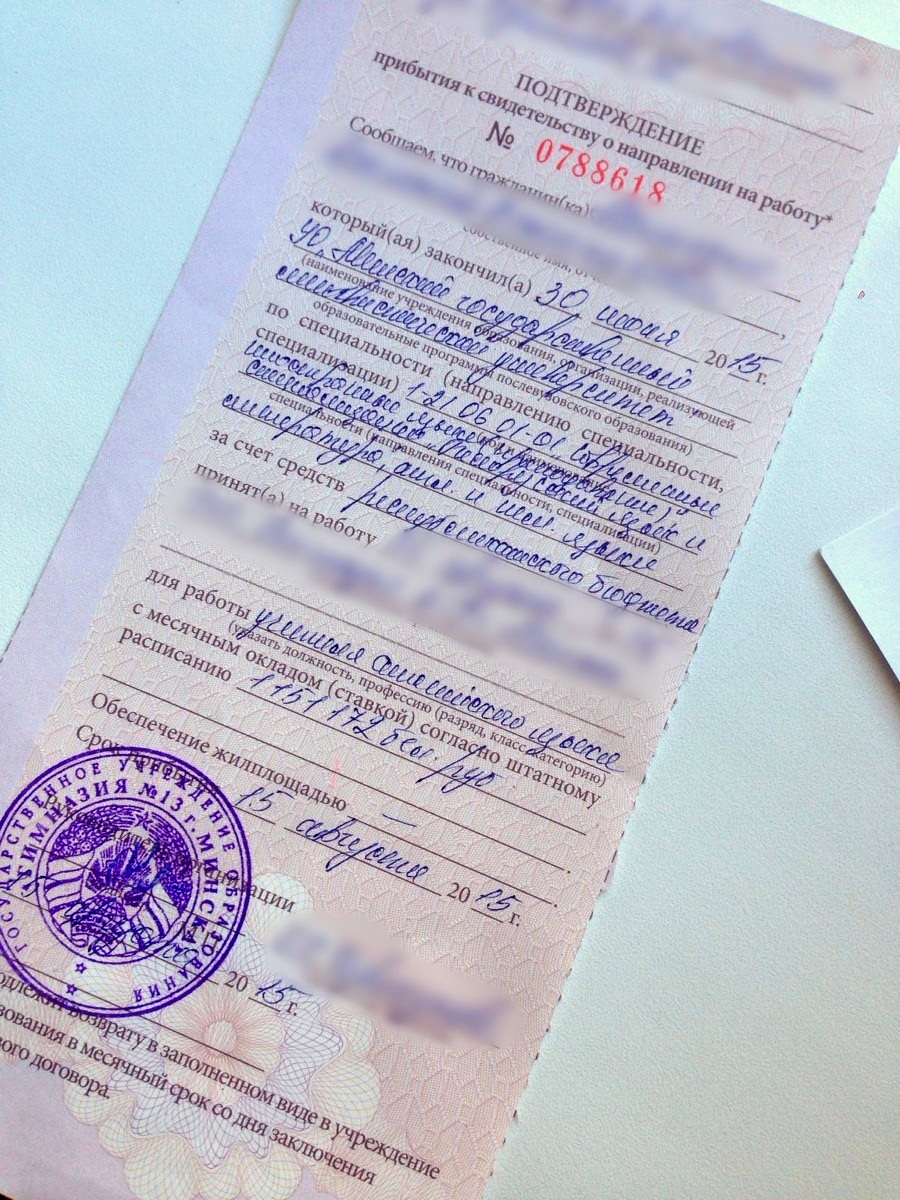 ПОДТВЕРЖДЕНИЕ
прибытия к свидетельству о направлении на работу*
№ 0788618
Сообщаем, что гражданин(ка)
который(ая) закончил(а) 30 июня 2015 г.
УО „Минский государственный
(наименование учреждения образования, организации, реализующей
лингвистический университет
образовательные программы послевузовского образования)
по специальности (направлению специальности,
специализации) 1-21 06 01-01 „Современные
иностранные языки (преподавание)
специальности (направления специальности, специализации)
литература, англ. и языки
за счет средств республиканского бюджета
принят(а) на работу
для работы учителя английского языка
(указать должность, профессию (разряд, класс, категорию)
с месячным окладом (ставкой) согласно штатному
расписанию 1151172 бел. руб
Обеспечение жилплощадью —
Срок прибытия 15 августа 2015 г.
2015 г.
возврату в заполненном виде в учреждение
в месячный срок со дня заключения
договора.
УЧРЕЖДЕНИЕ ОБРАЗОВАНИЯ
ГИМНАЗИЯ №13 г. МИНСКА